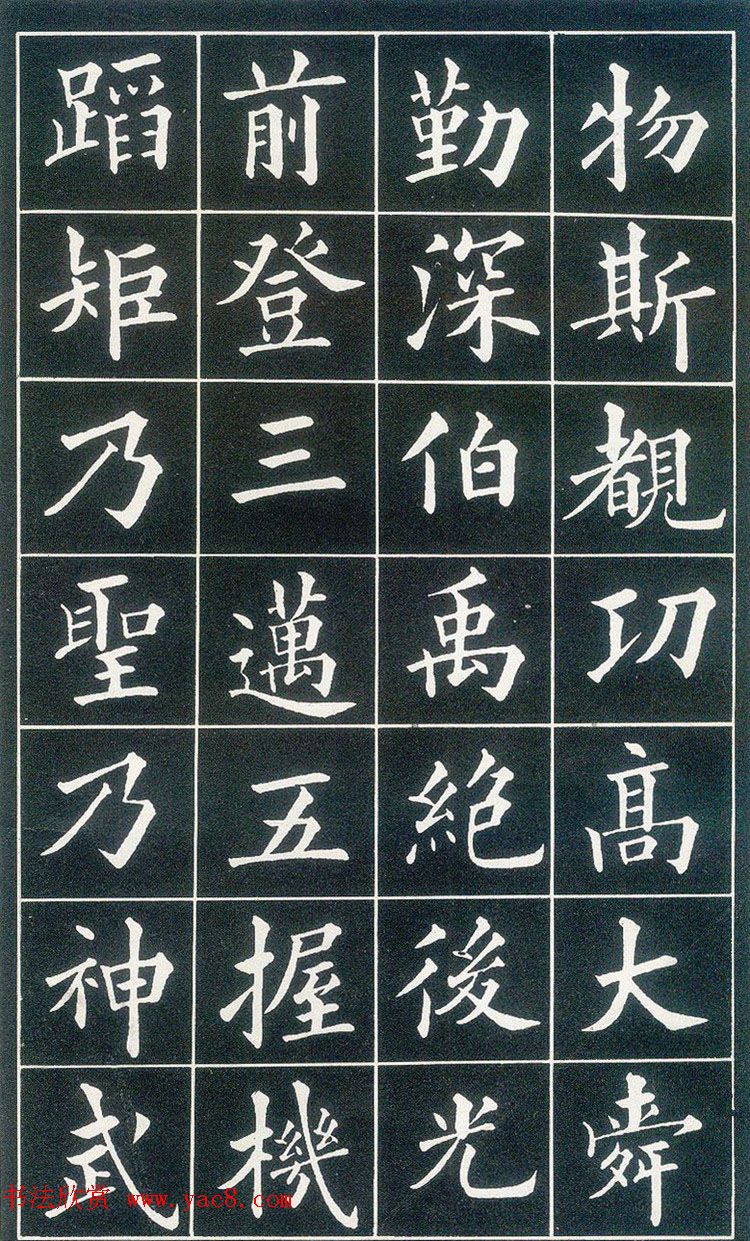 物斯覩功高大舜
勤深伯禹絕後光
前登三邁五握機
蹈矩乃聖乃神武
书法欣赏 www.yac8.com